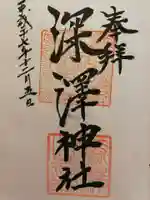 奉拝
深澤神社
平成廿七年十二月五日